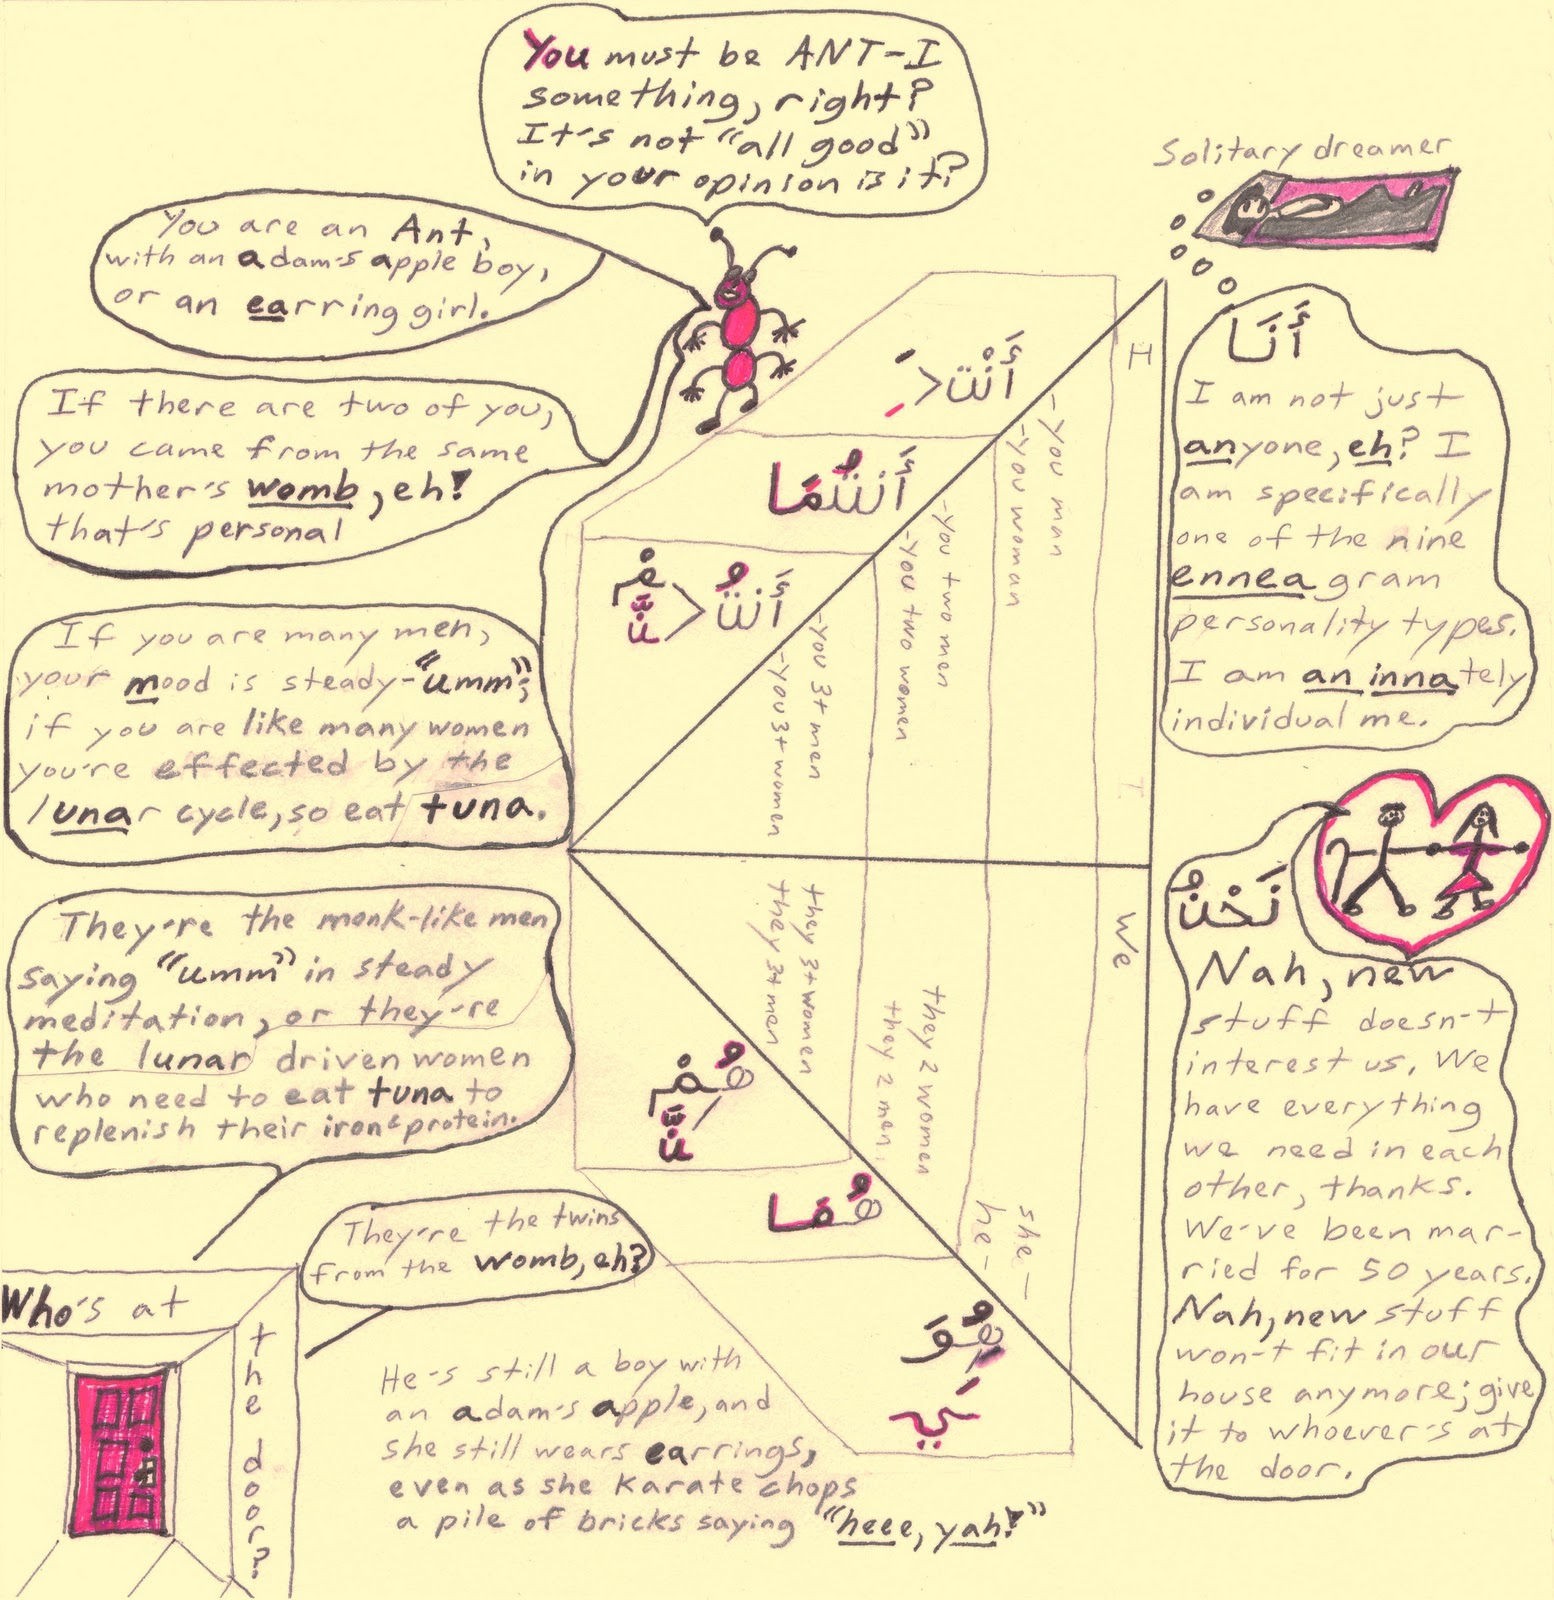 You must be ANT-I
something, right?
It's not "all good"
in your opinion is it?
Solitary dreamer
You are an Ant,
with an adam's apple boy,
or an earring girl.
If there are two of you,
you came from the same
mother's womb, eh!
that's personal
If you are many men,
your mood is steady-"umm";
if you are like many women
you're effected by the
lunar cycle, so eat tuna.
They're the monk-like men
saying "umm" in steady
meditation, or they're
the lunar driven women
who need to eat tuna to
replenish their iron & protein.
They're the twins
from the womb, eh?
Who's at
the door?
He's still a boy with
an adam's apple, and
she still wears earrings,
even as she karate chops
a pile of bricks saying "heee, yah!"
أَنْت
-you man
-you woman
أَنتُمَا
-you two men
-you two women
أَنتُ
مْ
نَّ
-you 3+ men
-you 3+ women
I
We
they 3+ women
they 3+ men
هُمْ
نَّ
they 2 women
they 2 men
هُمَا
she -
he -
هُوَ
ي
أَنَا
I am not just
anyone, eh? I
am specifically
one of the nine
enneagram
personality types.
I am an innately
individual me.
نَحْنُ
Nah, new
stuff doesn't
interest us. We
have everything
we need in each
other, thanks.
We've been mar-
ried for 50 years.
Nah, new stuff
won't fit in our
house anymore; give
it to whoever's at
the door.